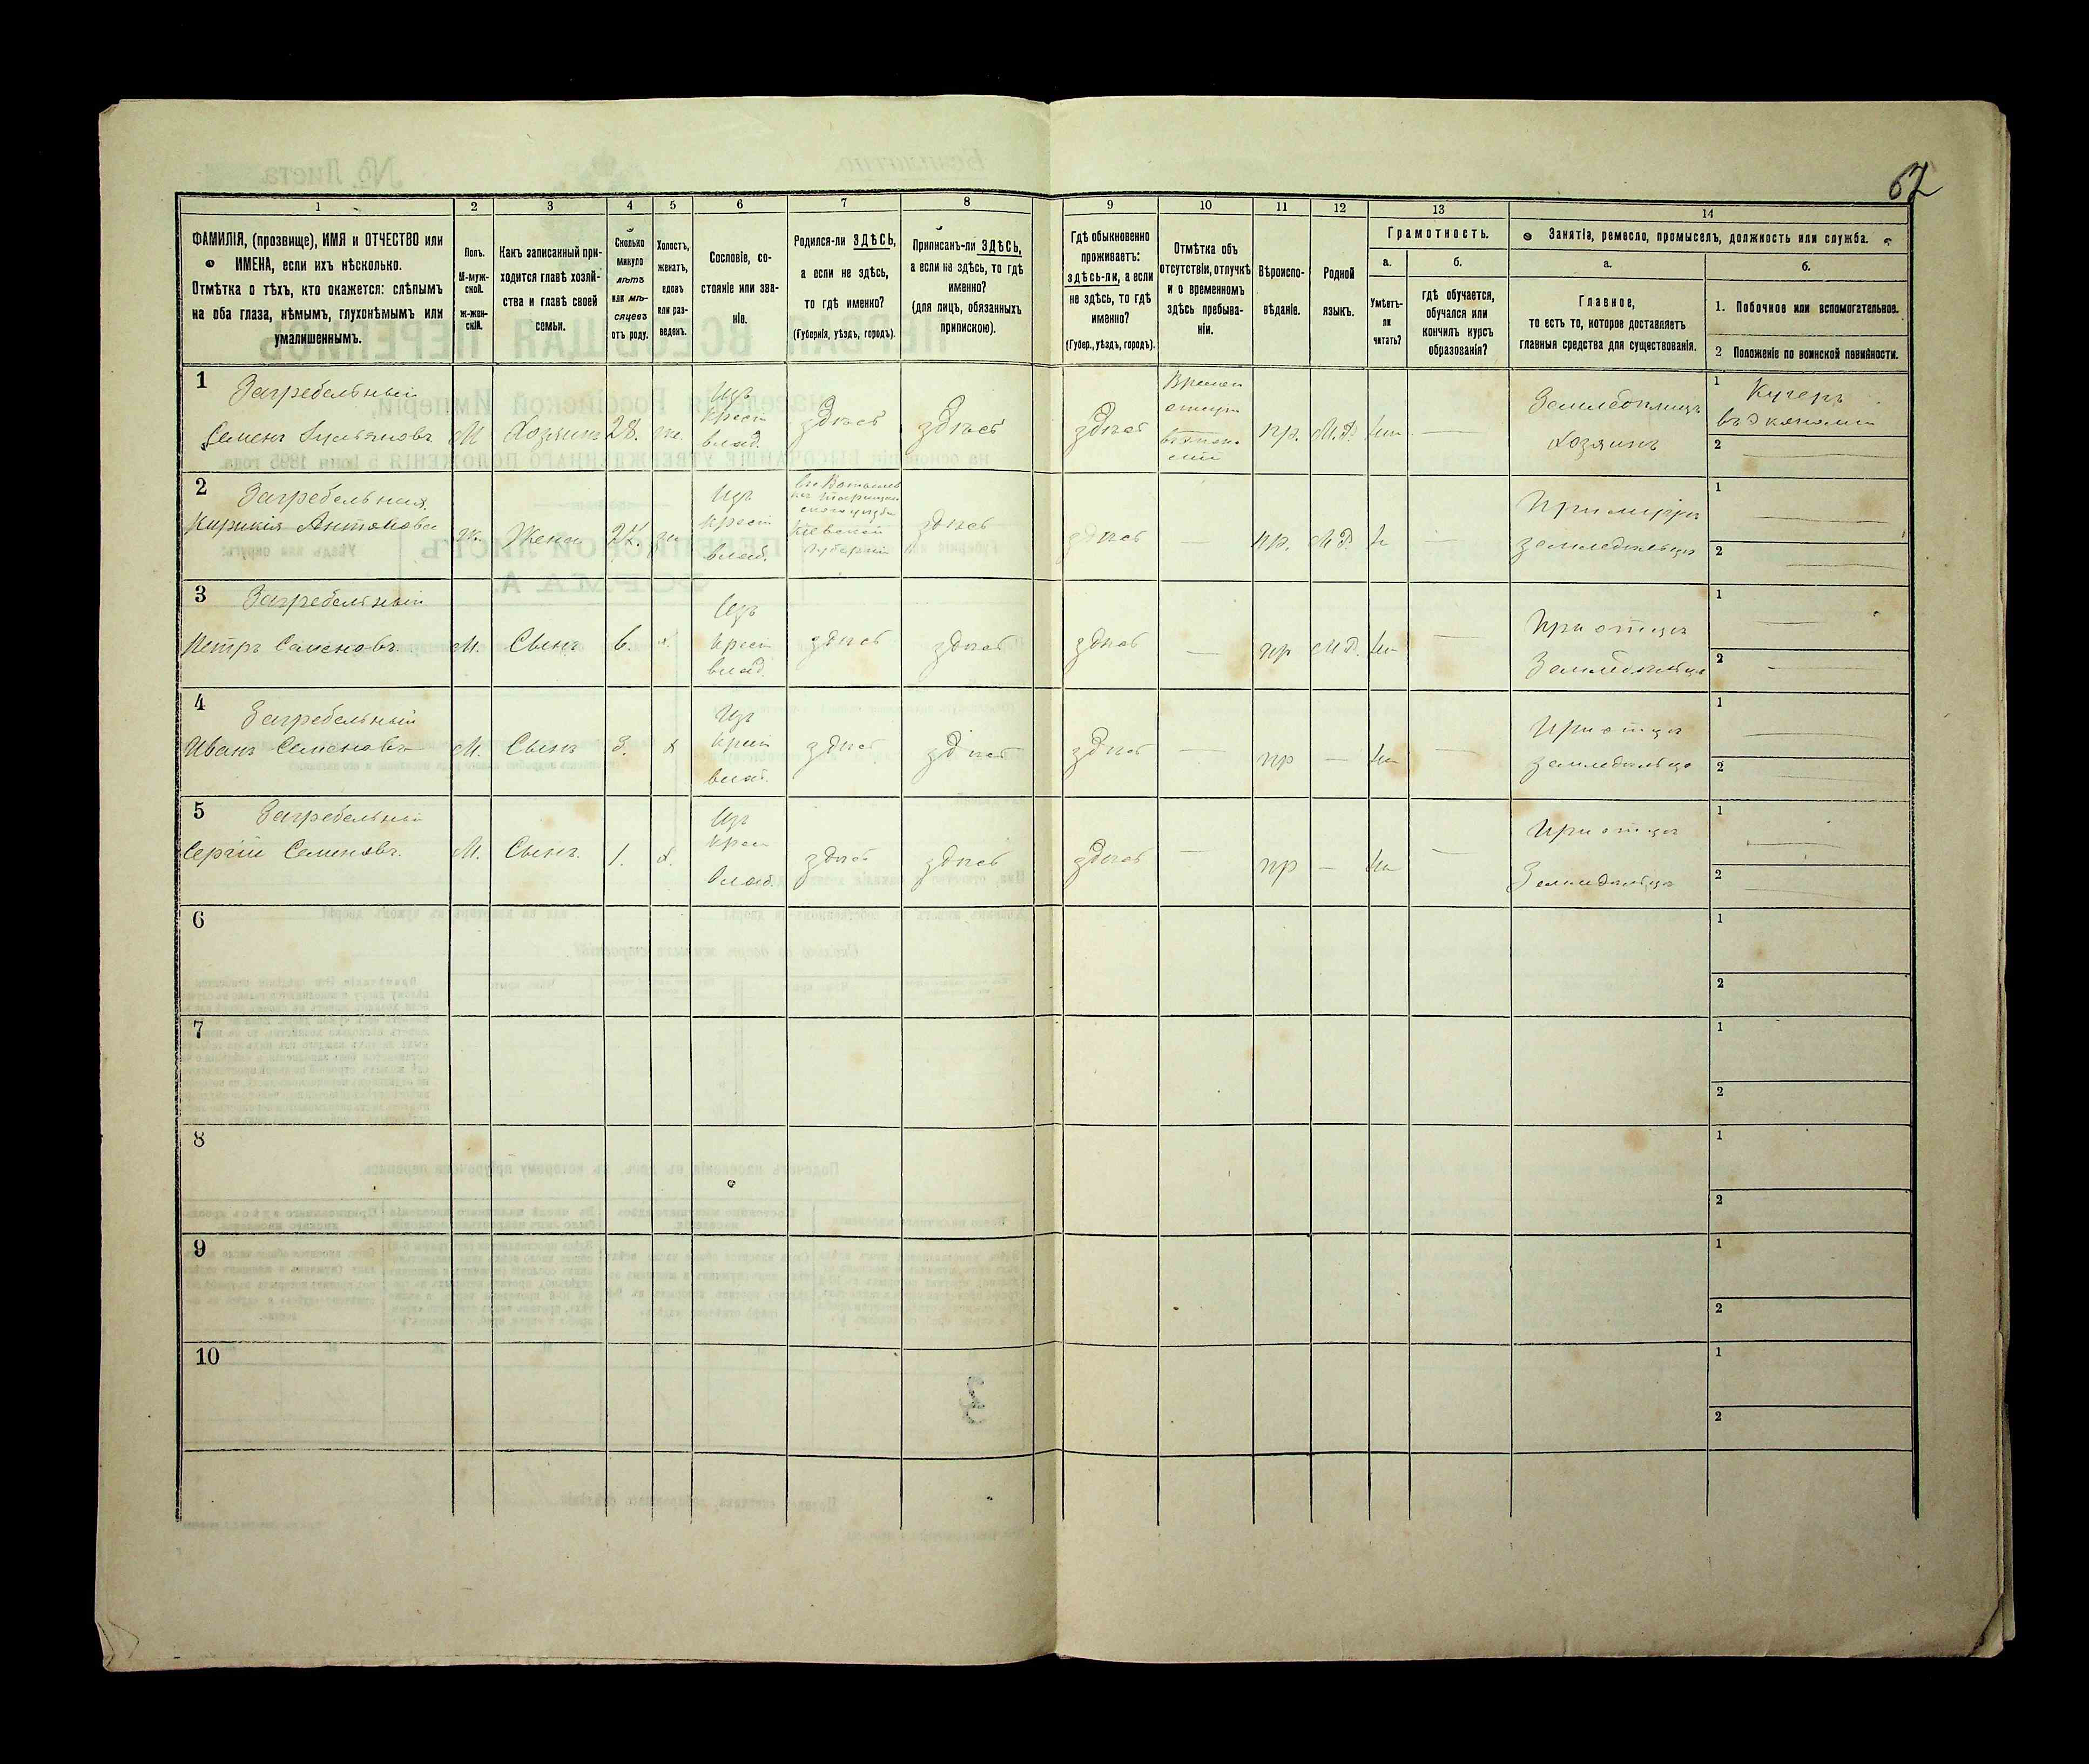 62
1 2 3 4 5 6 7 8 9 10 11 12 13 14
ФАМИЛІЯ, (прозвище), ИМЯ и ОТЧЕСТВО или
ИМЕНА, если ихъ нѣсколько.
Отмѣтка о тѣхъ, кто окажется: слѣпымъ
на оба глаза, нѣмымъ, глухонѣмымъ или
умалишеннымъ.
Полъ.
М-муж-
ской.
ж-жен-
скій.
Какъ записанный при-
ходится главѣ хозяй-
ства и главѣ своей
семьи.
Сколько
минуло
лѣтъ
или мѣ-
сяцевъ
отъ роду.
Холостъ,
женатъ,
вдовъ
или раз-
веденъ.
Сословіе, со-
стояніе или зва-
ніе.
Родился-ли ЗДѢСЬ,
а если не здѣсь,
то гдѣ именно?
(Губернія, уѣздъ, городъ).
Приписанъ-ли ЗДѢСЬ,
а если не здѣсь, то гдѣ
именно?
(для лицъ, обязанныхъ
припискою).
Гдѣ обыкновенно
проживаетъ:
здѣсь-ли, а если
не здѣсь, то гдѣ
именно?
(Губер., уѣздъ, городъ).
Отмѣтка объ
отсутствіи, отлучкѣ
и о временномъ
здѣсь пребыва-
ніи.
Вѣроиспо-
вѣданіе.
Родной
языкъ.
Грамотность.
а.
Умѣетъ-
ли
читать?
б.
гдѣ обучается,
обучался или
кончилъ курсъ
образованія?
Занятія, ремесло, промыселъ, должность или служба.
а.
Главное,
то есть то, которое доставляетъ
главныя средства для существованія.
б.
1. Побочное или вспомогательное.
2 Положеніе по воинской повинности.
1 Загребельный
Семенъ М Хозяинъ 28. ж.
Изъ
крест
влад.
здѣсь здѣсь здѣсь
Времен
отсут
пр. М.Р. нѣт —
Земледѣлецъ
Хозяинъ
1 Кучеръ
въ Экономіи
2 —
2 Загребельная
Кирикія Антоновна ж. Жена 24. зм
Изъ
крест
влад.
Кіевской
Губерніи
здѣсь здѣсь — пр. М.Р. н —
При мужѣ
земледѣльцѣ
1 —
2 —
3 Загребельный
Петръ Семеновъ М. Сынъ 6. х.
Изъ
крест
влад.
здѣсь здѣсь здѣсь — пр М.Р. нѣ —
При отцѣ
Земледѣльцѣ
1 —
2 —
4 Загребельный
Иванъ Семеновъ М Сынъ 3. х
Изъ
крест
влад.
здѣсь здѣсь здѣсь — пр — нѣ —
При отцѣ
земледѣльцѣ
1 —
2 —
5 Загребельный
Сергій Семеновъ. М. Сынъ. 1. х.
Изъ
крест
влад.
здѣсь здѣсь здѣсь — пр — нѣ —
При отцѣ
Земледѣльцѣ
1 —
2 —
6
1
2
7
1
2
8
1
2
9
1
2
10
1
2